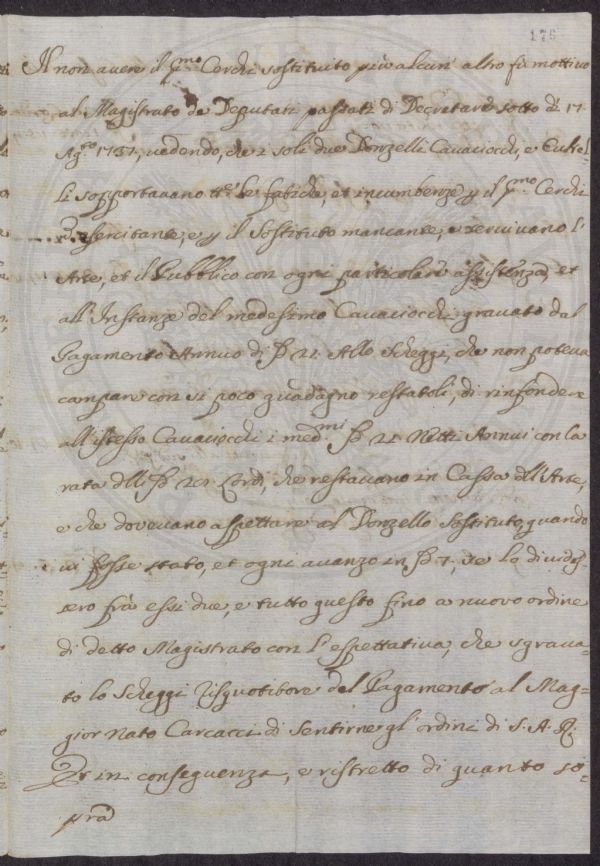 176
Il non avere il Sig.mo Cerchi sostituito più alcun' altro fù mottivo
al Magistrato de Deputati passati di Decretare sotto dì 17
Ag.to 1737, vedendo, che i soli due Donzelli Cavaciocchi, e
li sopportavano tt.e le fatiche, et incumbenze p il Cerchi
Esercitante, e p il Sostituto mancante, e servivano l'
Arte, et il Pubblico con ogni particolare assistenza, et
all' Instanze del medesimo Cavaciocchi gravato dal
Pagamento Annuo di 21. Allo Scheggi, che non poteva
campare con sì poco guadagno restatoli, di rinfondere
all' istesso Cavaciocchi i med.mi 21 Netti Annui con la
rata dlli 28, che restavano in Cassa dll' Arte,
e che dovevano aspettare al Donzello Sostituto, quando
vi fosse stato, et ogni avanzo in 7, se lo divides=
sero frà essi due, e tutto questo fino a nuovo ordine
di detto Magistrato con l' espettativa, che sgrava=
to lo Scheggi Risquotitore del Pagamento al Mag=
gior Nato Carcacci di Sentirne gl' ordini di S. A. R.
Et in conseguenza, e ristretto di quanto so=
pra